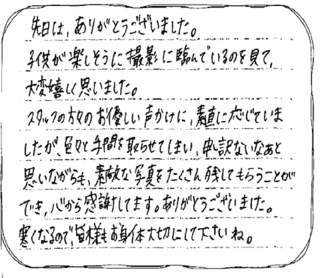 先日は、ありがとうございました。
子供が楽しそうに撮影に臨んでいるのを見て、
大変嬉しく思いました。
スタッフの方々のお優しい声かけに、素直に応じていま
したが、色々と手間を取らせてしまい、申し訳ないなあと
思いながらも、素敵な写真をたくさん残してもらうことが
でき、心から感謝してます。ありがとうございました。
寒くなるので、皆様もお身体大切にして下さいね。